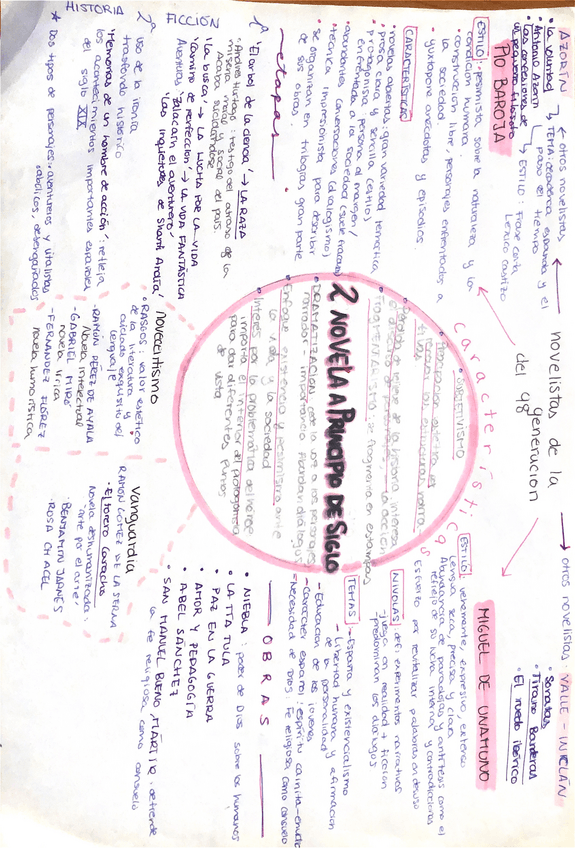 2 NOVELA A PRINCIPIO DE SIGLO
características
SUBJETIVISMO
FRAGMENTARISMO: se fragmenta en estampas
DRAMATIZACIÓN: cede la voz a los personajes
narrador - importancia
Enfoque existencial y pesimista ante
la vida y la sociedad
Interés por la problemática del héroe
importa el interior del protagonista
para dar diferentes puntos
de vista
novelistas de la
generación
del 98
otros novelistas
AZORÍN
• La voluntad
• Antonio Azorín
• Las confesiones de
un pequeño filósofo
TEMA: decadencia española y el
paso el tiempo
ESTILO: Frase corta
Léxico castizo
PÍO BAROJA
ESTILO: pesimista sobre la naturaleza y la
condición humana
• construcción libre, personajes enfrentados a
la sociedad
• yuxtapone anécdotas y episodios.
CARACTERÍSTICAS
• novelas abiertas: gran variedad temática
• prosa clara y sencilla
• protagonista: persona al margen/
enfrentada a la sociedad (suele fracasar)
• abundantes conversaciones (dialogismo)
• técnica impresionista para describir
• se organizan en trilogías, gran parte
de sus obras.
etapas
1ª
'El árbol de la ciencia' → LA RAZA
Andrés Hurtado: testigo del atraso de la
miseria moral y social del país.
Acaba suicidándose
'La busca' → LA LUCHA POR LA VIDA
'Camino de perfección' → LA VIDA FANTÁSTICA
Aventuras: 'Zalacaín el aventurero'
'Las inquietudes de Shanti Andía'
FICCIÓN
2ª
HISTORIA
uso de la ironía
trasfondo histórico
'Memorias de un hombre de acción': refleja
los acontecimientos importantes españoles
del siglo XIX
★ Dos tipos de personajes: aventureros y vitalistas
abúlicos, desengañados
otros novelistas: VALLE-INCLÁN
• Sonatas
• Tirano Banderas
• El ruedo ibérico
MIGUEL DE UNAMUNO
ESTILO: vehemente, expresivo, intenso
Lengua seca, precisa y clara
Abundancia de paradojas y antítesis como el
reflejo de su lucha interna y contradicciones
Esfuerzo por revitalizar palabras en desuso
NIVOLAS: def: experimentos narrativos
- juega con realidad + ficción
- predominan los diálogos
TEMAS
- España y existencialismo
- Libertad humana y afirmación
de la personalidad
- Educación de los jóvenes
- Carácter español: espíritu cainita-envidia
- Necesidad de Dios: Fe religiosa como consuelo
OBRAS
• NIEBLA: poder de Dios sobre los humanos
• LA TÍA TULA
• PAZ EN LA GUERRA
• AMOR Y PEDAGOGÍA
• ABEL SÁNCHEZ
• SAN MANUEL BUENO, MÁRTIR: defiende
la fe religiosa como consuelo
novecentismo
• RASGOS: valor estético
de la literatura y
cuidado exquisito del
lenguaje
- RAMÓN PÉREZ DE AYALA
Novela intelectual
- GABRIEL MIRÓ
novela lírica
- FERNÁNDEZ FLÓREZ
novela humorística
vanguardia
RAMÓN GÓMEZ DE LA SERNA
• El torero Caracho
Novela deshumanizada:
'arte por el arte'
· BENJAMÍN JARNÉS
· ROSA CHACEL